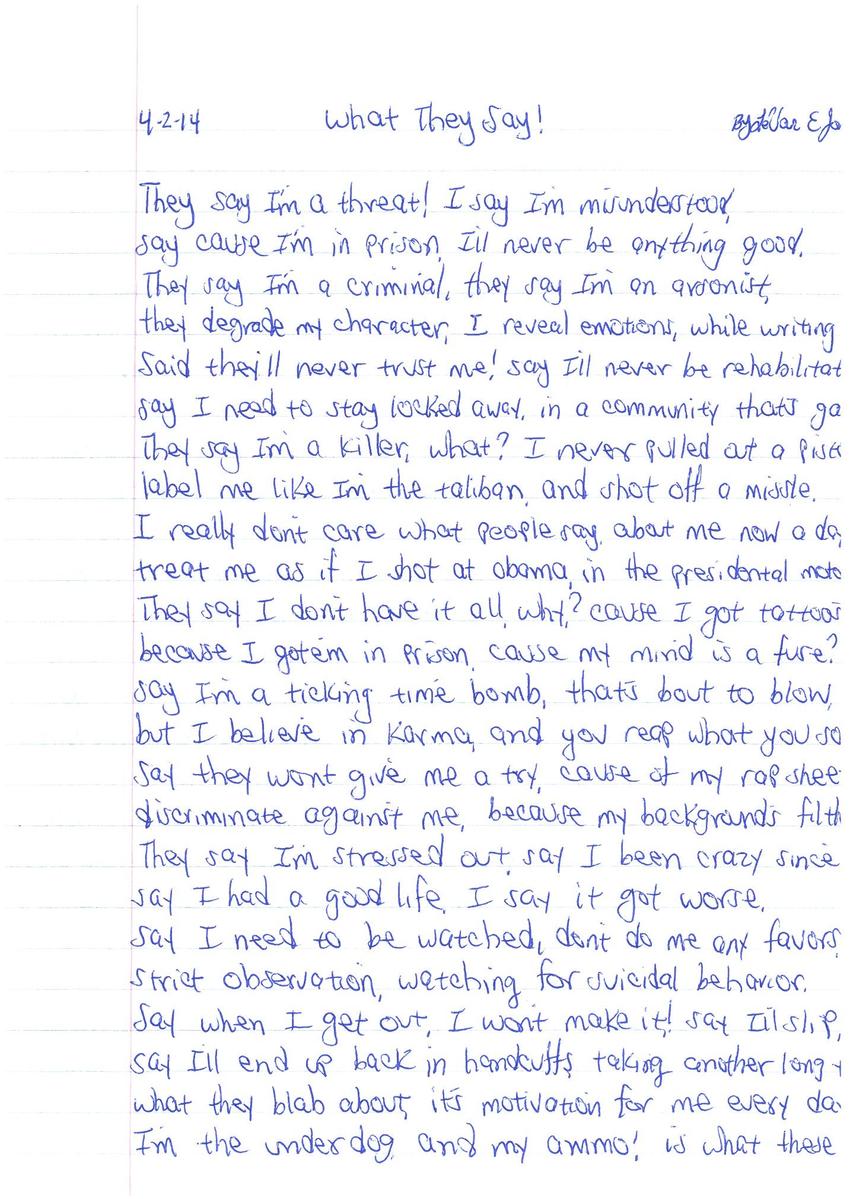 4-2-14 What They Say! By SteVan E Jo
They say I'm a threat! I say I'm misunderstood,
say cause I'm in prison, I'll never be anything good.
They say I'm a criminal, they say I'm an arsonist,
they degrade my character, I reveal emotions, while writing
Said they'll never trust me! say I'll never be rehabilitat
say I need to stay locked away, in a community that's ga
They say I'm a killer, what? I never pulled out a pist
label me like I'm the taliban, and shot off a missle.
I really don't care what people say, about me now a da
treat me as if I shot at obama, in the presidental moto
They say I don't have it all, why? cause I got tattoos
because I gotem in prison, cause my mind is a fuse?
say I'm a ticking time bomb, that's bout to blow,
but I believe in Karma, and you reap what you so
say they wont give me a try, cause of my rap shee
discriminate against me, because my backgrounds filth
They say I'm stressed out, say I been crazy since
say I had a good life, I say it got worse.
say I need to be watched, don't do me any favors,
strict observation, watching for suicidal behavior.
Say when I get out, I won't make it! say I'll slip,
say I'll end up back in handcuffs, taking another long t
what they blab about, it's motivation for me every da
I'm the underdog, and my ammo! is what these